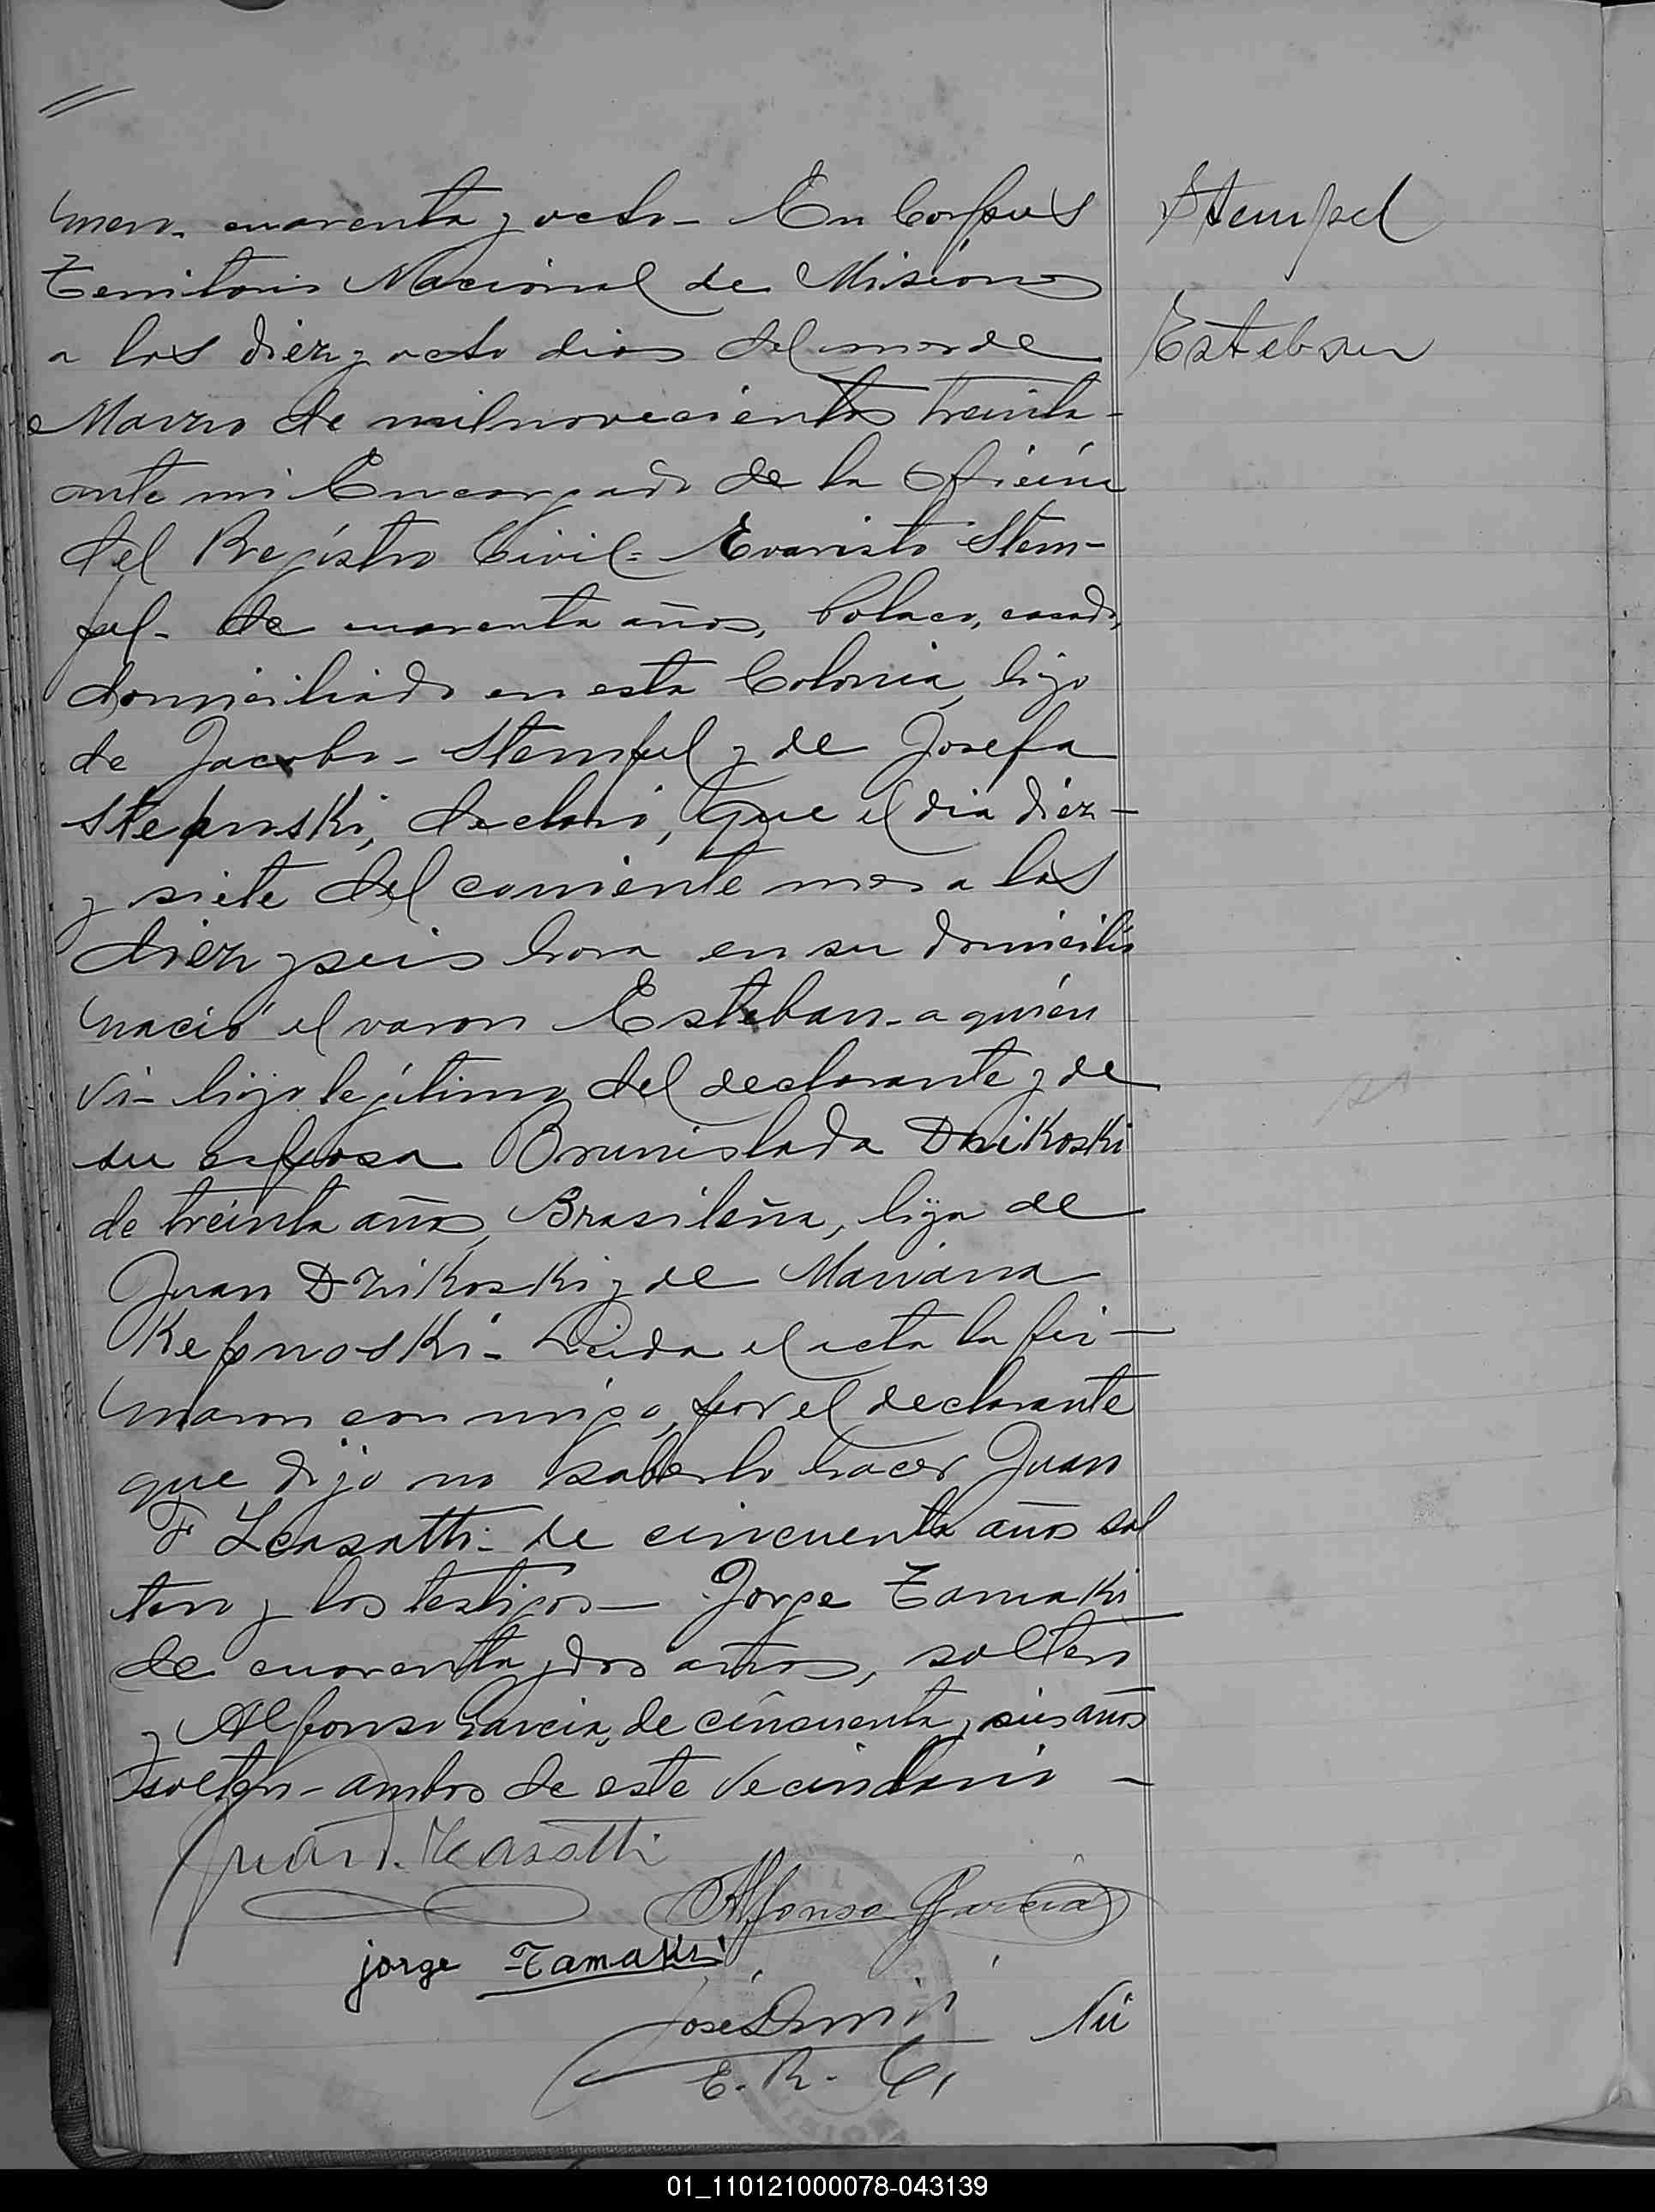 mero cuarenta y ocho - En Corpus
Territorio Nacional de Misiones
a los diez y ocho dias del mes de
Marzo de mil novecientos treinta -
ante mi Encargado de la Oficina
del Registro Civil = Evaristo Stem-
pel - de cuarenta años, Polaco, casado,
domiciliado en esta Colonia, hijo
de Jacobo - Stempel y de Josefa
Stepnski, declaró, Que el dia diez -
y siete del corriente mes a las
diez y seis hora en su domicilio
nació el varon Esteban - a quién
ví - hijo legítimo del declarante y de
su esposa Brunislada Dzikoski
de treinta años, Brasileña, hija de
Juan Dzikoski y de Mariana
Kepnoski - Leida el acta la fir -
maron con migo, por el declarante
que dijo no saberlo hacer Juan
F de cincuenta años sol
tero y los testigos - Jorge Tamaki
de cuarenta y dos años, soltero
y Alfonso Garcia, de cincuenta y seis años
soltero - ambos de este Vecindario -
Juan
Alfonso Garcia
jorge Tamaki
José Nú
E. R. C.
//
Stempel
Esteban
01_110121000078-043139